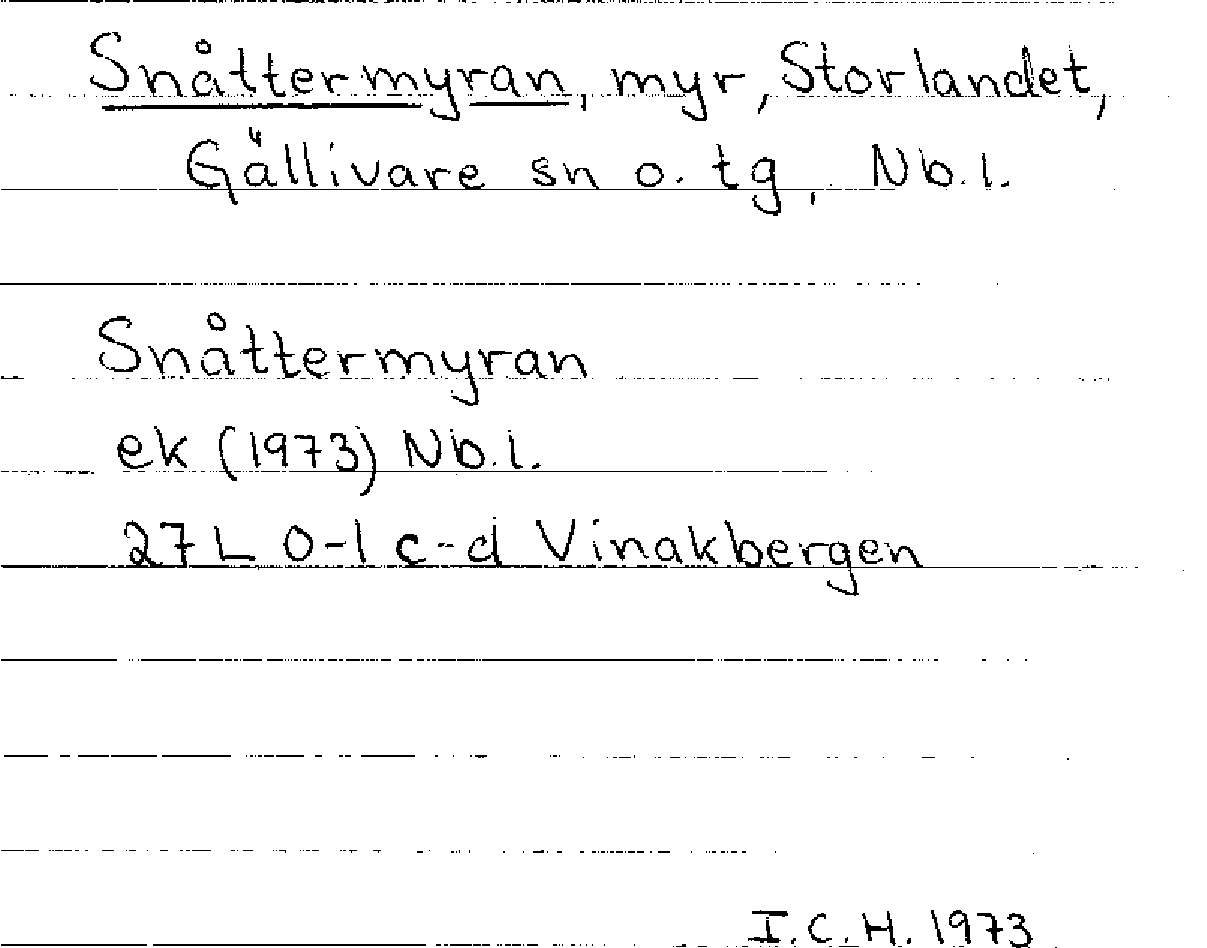 Snåttermyran, myr, Storlandet,
Gällivare sn o. tg, Nb.l.
Snåttermyran
ek (1973) Nb.l.
27 L 0-1 c-d Vinakbergen
I.C.H. 1973